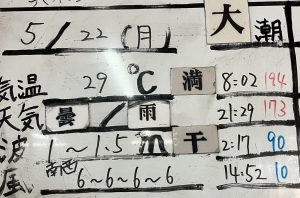 5/22(月) 大潮
気温 29℃ 満 8:02 194
天気 曇/雨 21:29 173
波 1~1.5m 干 2:17 90
風 南西 6~6~6~6 14:52 10